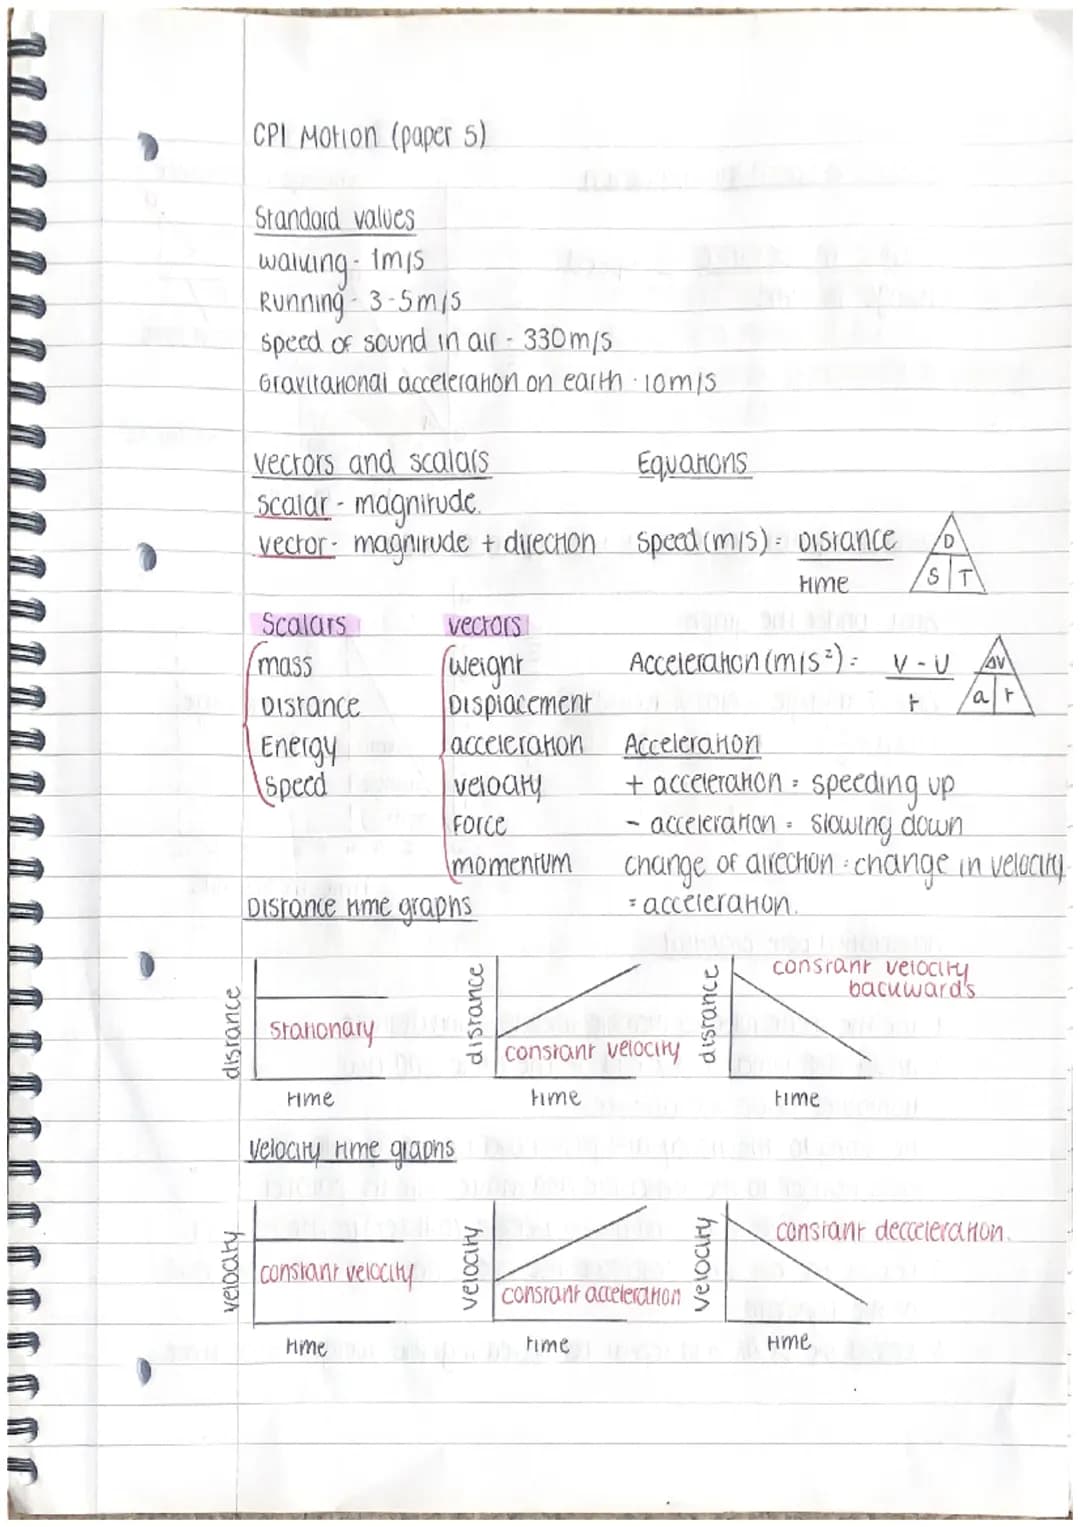 CP1 Motion (paper 5)
Standard values
walking - 1m/s
Running - 3-5m/s
speed of sound in air - 330m/s
Gravitational acceleration on earth - 10m/s
vectors and scalars
Equations
scalar - magnitude.
vector - magnitude + direction
speed (m/s) = Distance
time
D
S T
Scalars
vectors
mass
Distance
Energy
speed
weight
Displacement
acceleration
velocity
Force
momentum
Acceleration (m/s²) = V - U
t
ΔV
a t
Acceleration
+ acceleration = speeding up
- acceleration = slowing down
change of direction = change in velocity
= acceleration.
Distance time graphs
distance
stationary
time
distance
constant velocity
time
distance
constant velocity
backwards
time
Velocity time graphs
velocity
constant velocity
time
velocity
constant acceleration
time
velocity
constant decceleration.
time